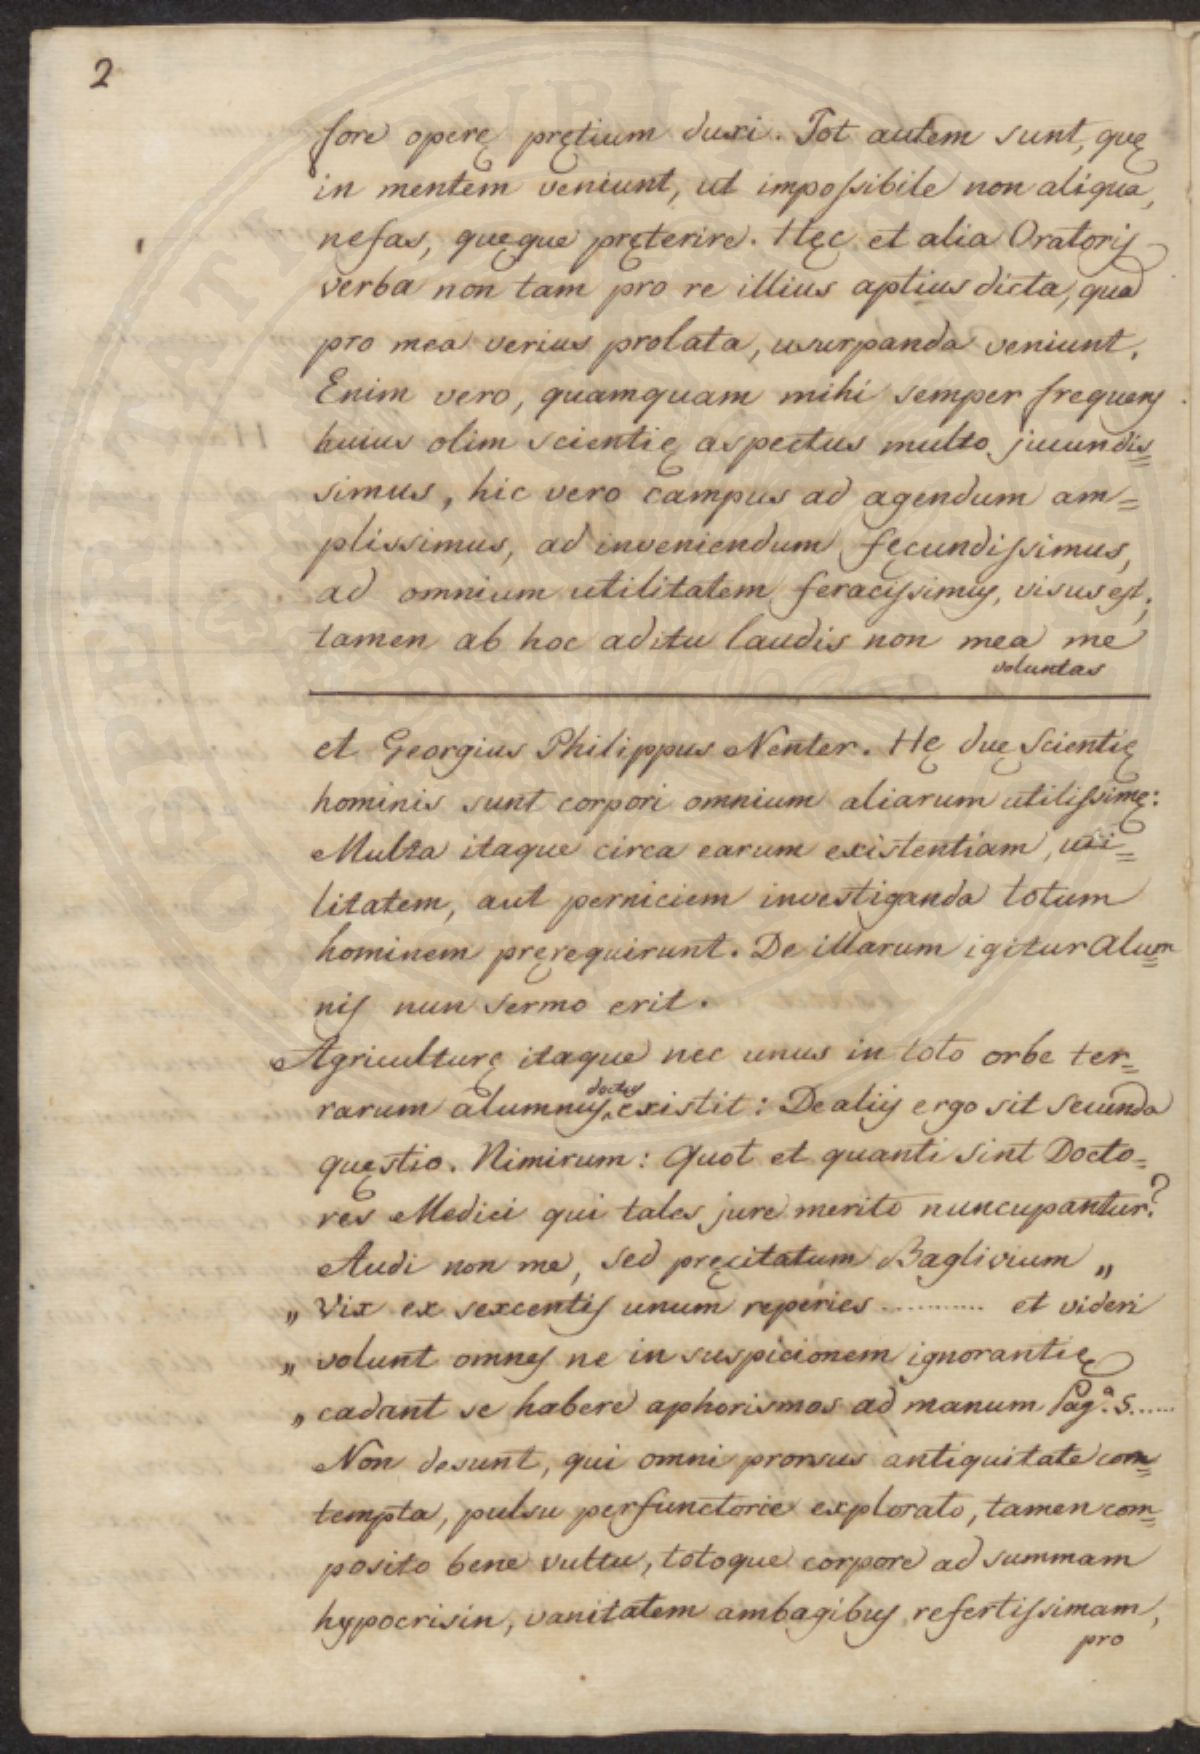 2
fore operę pretium duxi. Tot autem sunt, quę
in mentem veniunt, ut impoſsibile non aliqua,
nefas, quęque pręterire. Hęc et alia Oratorij
verba non tam pro re illius aptius dicta, quā
pro mea verius prolata, usurpanda veniunt.
Enim vero, quamquam mihi semper frequens
huius olim scientię aspectus multo jucundis=
simus, hic vero campus ad agendum am=
plissimus, ad inveniendum fęcundiſsimus,
ad omnium utilitatem feraciſsimus, visus est;
tamen ab hoc aditu laudis non mea me
voluntas
et Georgius Philippus Nenter. Hę duę Scientię
hominis sunt corpori omnium aliarum utiliſsimę:
Multa itaque circa earum existentiam, uti=
litatem, aut perniciem investiganda totum
hominem pręrequirunt. De illarum igitur alum=
nis nun sermo erit.
Agriculturę itaque nec unus in toto orbe ter=
rarum alumnus doctus existit: De aliis ergo sit secunda
quęstio. Nimirum: Quot et quanti sint Docto=
res Medici qui tales jure merito nuncupantur?
Audi non me, sed pręcitatum Baglivium „
„ Vix ex sexcentis unum reperies ............ et videri
„ volunt omnes ne in suspicionem ignorantię
„ cadant se habere aphorismos ad manum Pag.ª 5......
Non desunt, qui omni prorsus antiquitate con=
tempta, pulsu perfunctorie explorato, tamen com=
posito bene vultu, totoque corpore ad summam
hypocrisin, vanitatem ambagibus refertiſsimam,
pro